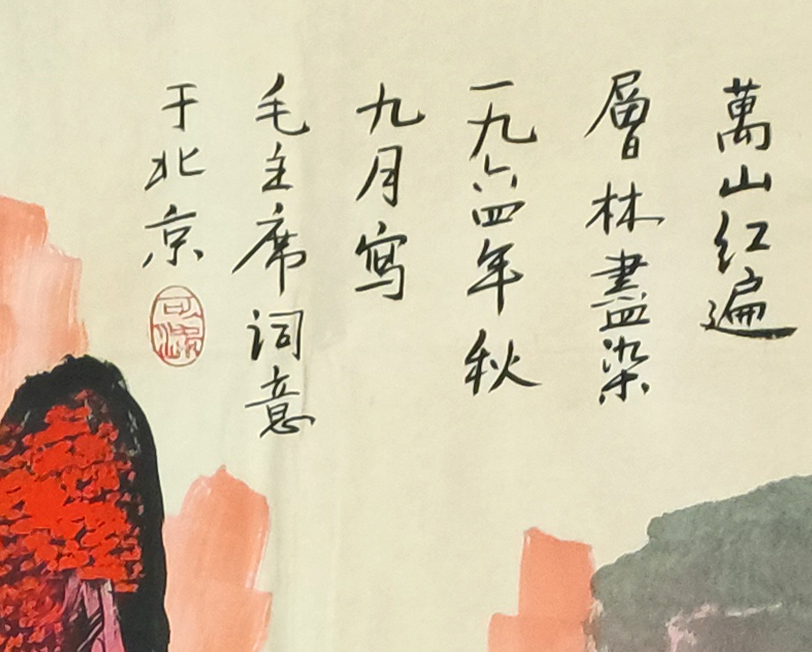 萬山红遍
層林盡染
一九六四年秋
九月寫
毛主席词意
于北京
可染